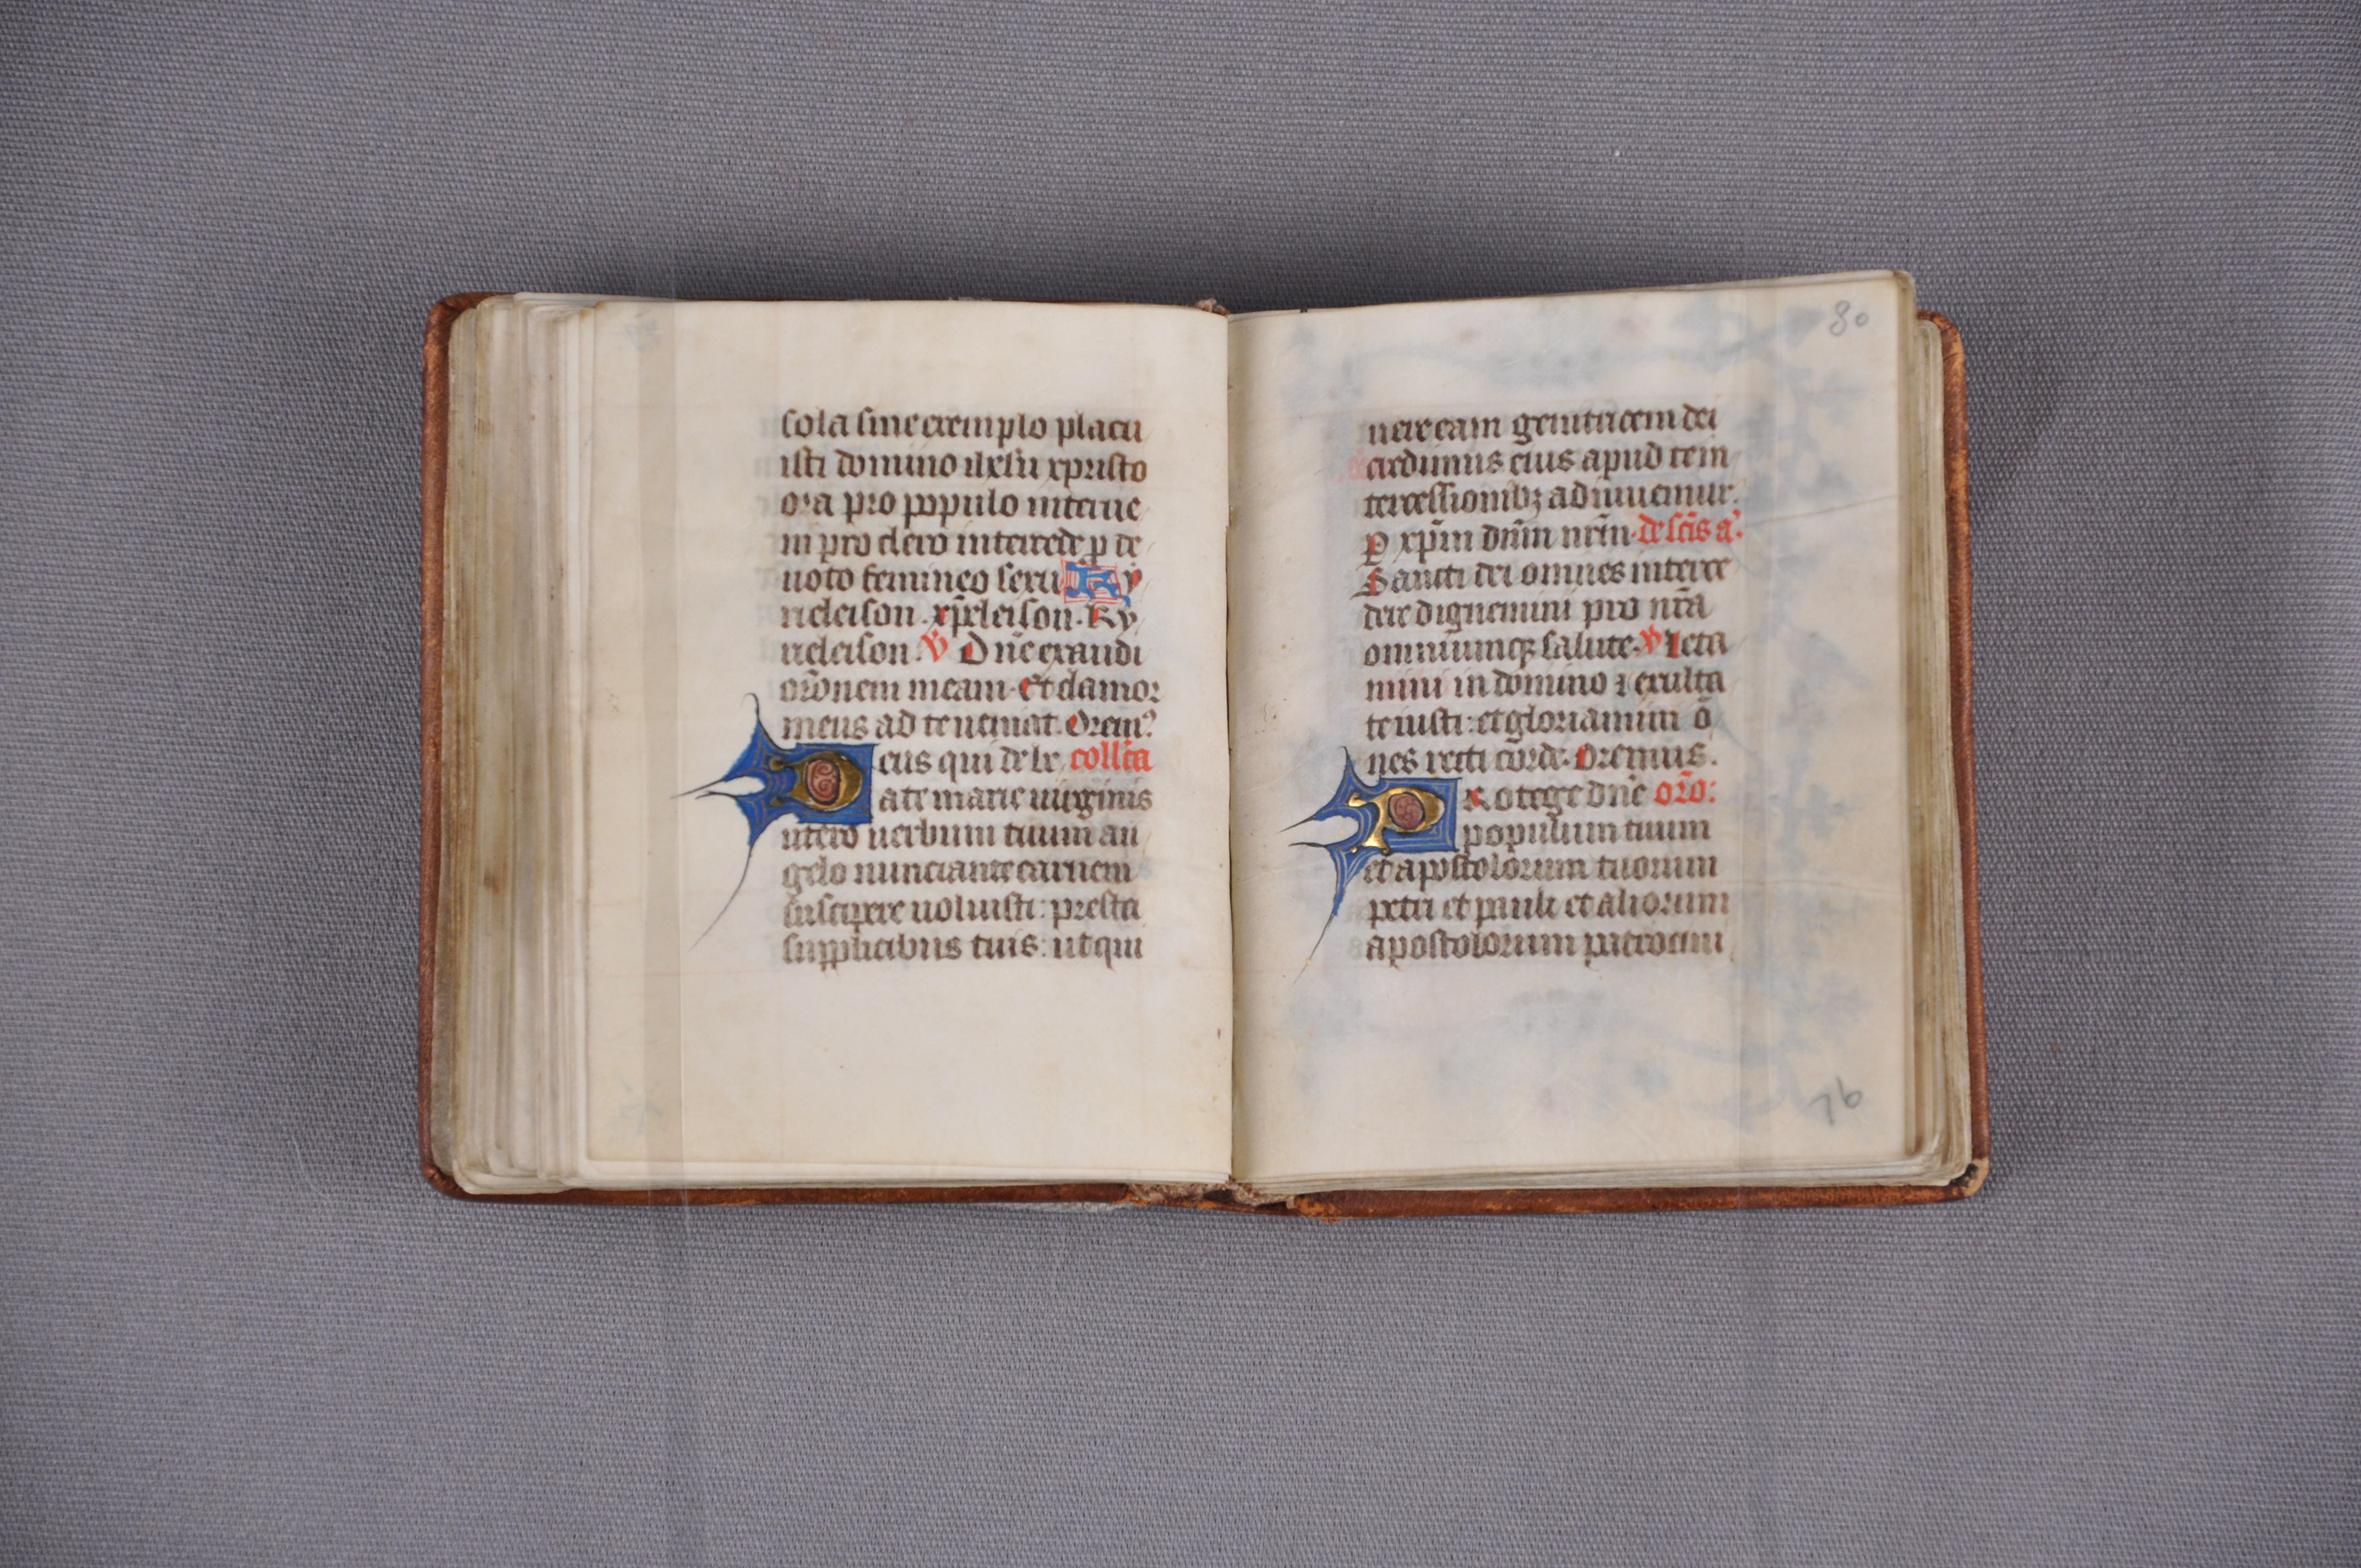 sola sine exemplo placu
isti domino ihesu xpristo
ora pro populo interue
ni pro clero intercede p de
uoto femineo sexu Ky
rieleison. xp̄eleison. Ky
rieleison. V Dn̄e exaudi
or̄onem meam. Et clamor
meus ad te ueniat. Orem9
Deus qui de be collc̄a
ate marie uirginis
utero uerbum tuum an
gelo nunciante carnem
suscipere uoluisti: presta
supplicibus tuis: ut qui
80
uere eam genitricem dei
credimus eius apud te in
tercessionibꝫ adiuuemur.
P xp̄m dn̄m nr̄m. de sc̄is a᷎.
Sancti dei omnes interce
dere dignemini pro nr̄a
omniumqꝫ salute. V Leta
mini in domino ⁊ exulta
te iusti: et gloriamini o̅
nes recti corde. Oremus.
Protege dn̄e oro̅:
populum tuum
et apostolorum tuorum
petri et pauli et aliorum
apostolorum patrocini
76